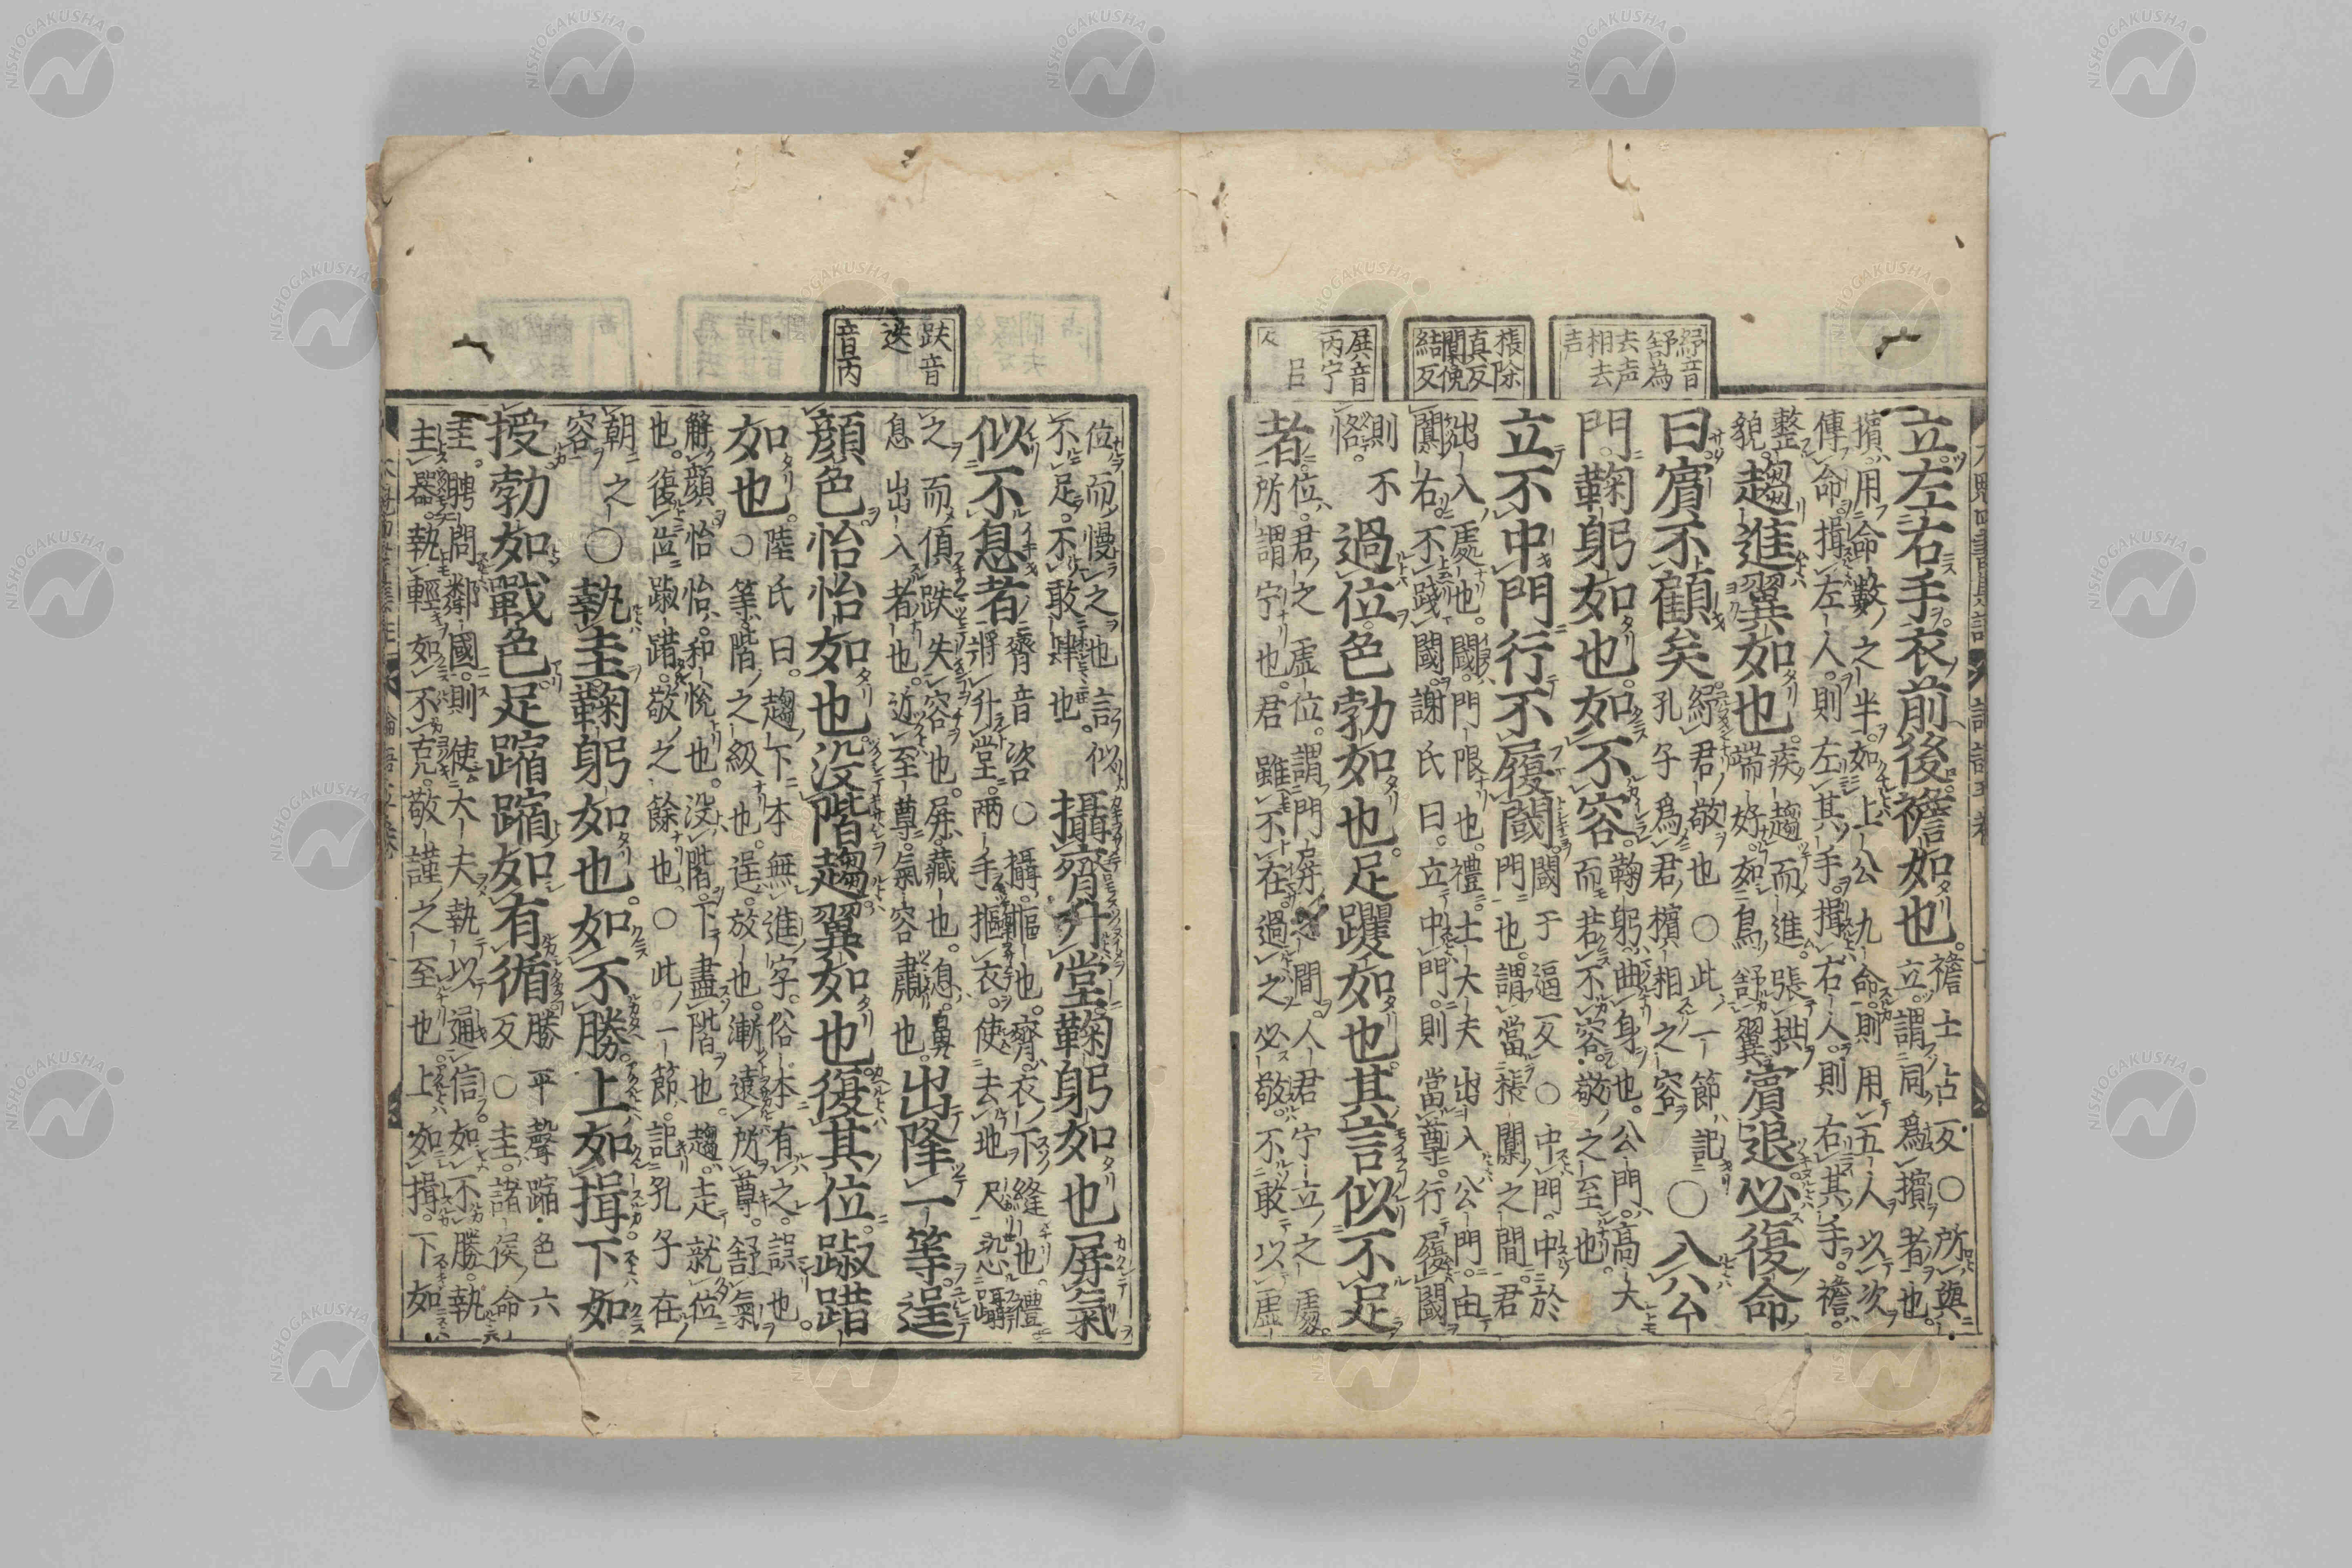 紓音
舒為
去声
相去
声
棖除
真反
闑俛
結反
屏音
丙宁
立左右手衣前後襜如也。襜士占反。○所與
立。謂同爲擯者也。
擯用命數之半。如上公九命。則用五人以次
傳命。揖左人。則左其手。揖右人。則右其手。襜
整
貌。趨進翼如也。疾趨而進。張拱
端好。如鳥舒翼賓退。必復命
曰賓不顧矣紓君敬也○此一節記
孔子爲君擯相之容○入公
門。鞠躬如也。如不容。鞠躬曲身也。公門高大
而若不容。敬之至也。
立不中門行不履閾閾于逼反○中門。中於
門也。謂當棖闑之間。君
出入處也。閾。門限也。禮。士大夫出入公門。由
闑右。不踐閾。謝氏曰。立中門。則當尊。行履閾
則不
恪。過位。色勃如也。足躩如也。其言似不足
者。位。君之虛位。謂門屏之間。人君宁立之處。
所謂宁也。君雖不在。過之必敬。不敢以虛
跌音
迭
音丙
位而慢之也。言似
不足。不敢肆也。攝齊升堂。鞠躬如也。屏氣
似不息者齊音咨○攝。摳也。齊。衣下縫也。禮
將升堂。兩手摳衣。使去地尺。恐躡
之而傾跌失容也。屏。藏也。息。鼻
息出入者也。近至尊。氣容肅也。出降一等。逞
顔色。怡怡如也。沒階趨。翼如也。復其位踧踖
如也。陸氏曰。趨下本無進字。俗本有之。誤也。
○等。階之級也。逞。放也。漸遠所尊。舒氣
解顔。怡怡。和悅也。沒階。下盡階也。趨。走就位
也。復位踧踖。敬之餘也。○此一節。記孔子在
朝之
容○執圭。鞠躬如也。如不勝。上如揖。下如
授。勃如戰色。足蹜蹜如有循勝平聲蹜色六
反○圭。諸侯命
圭。聘問鄰國。則使大夫執以通信。如不勝。執
主器。執輕如不克。敬謹之至也。上如揖。下如